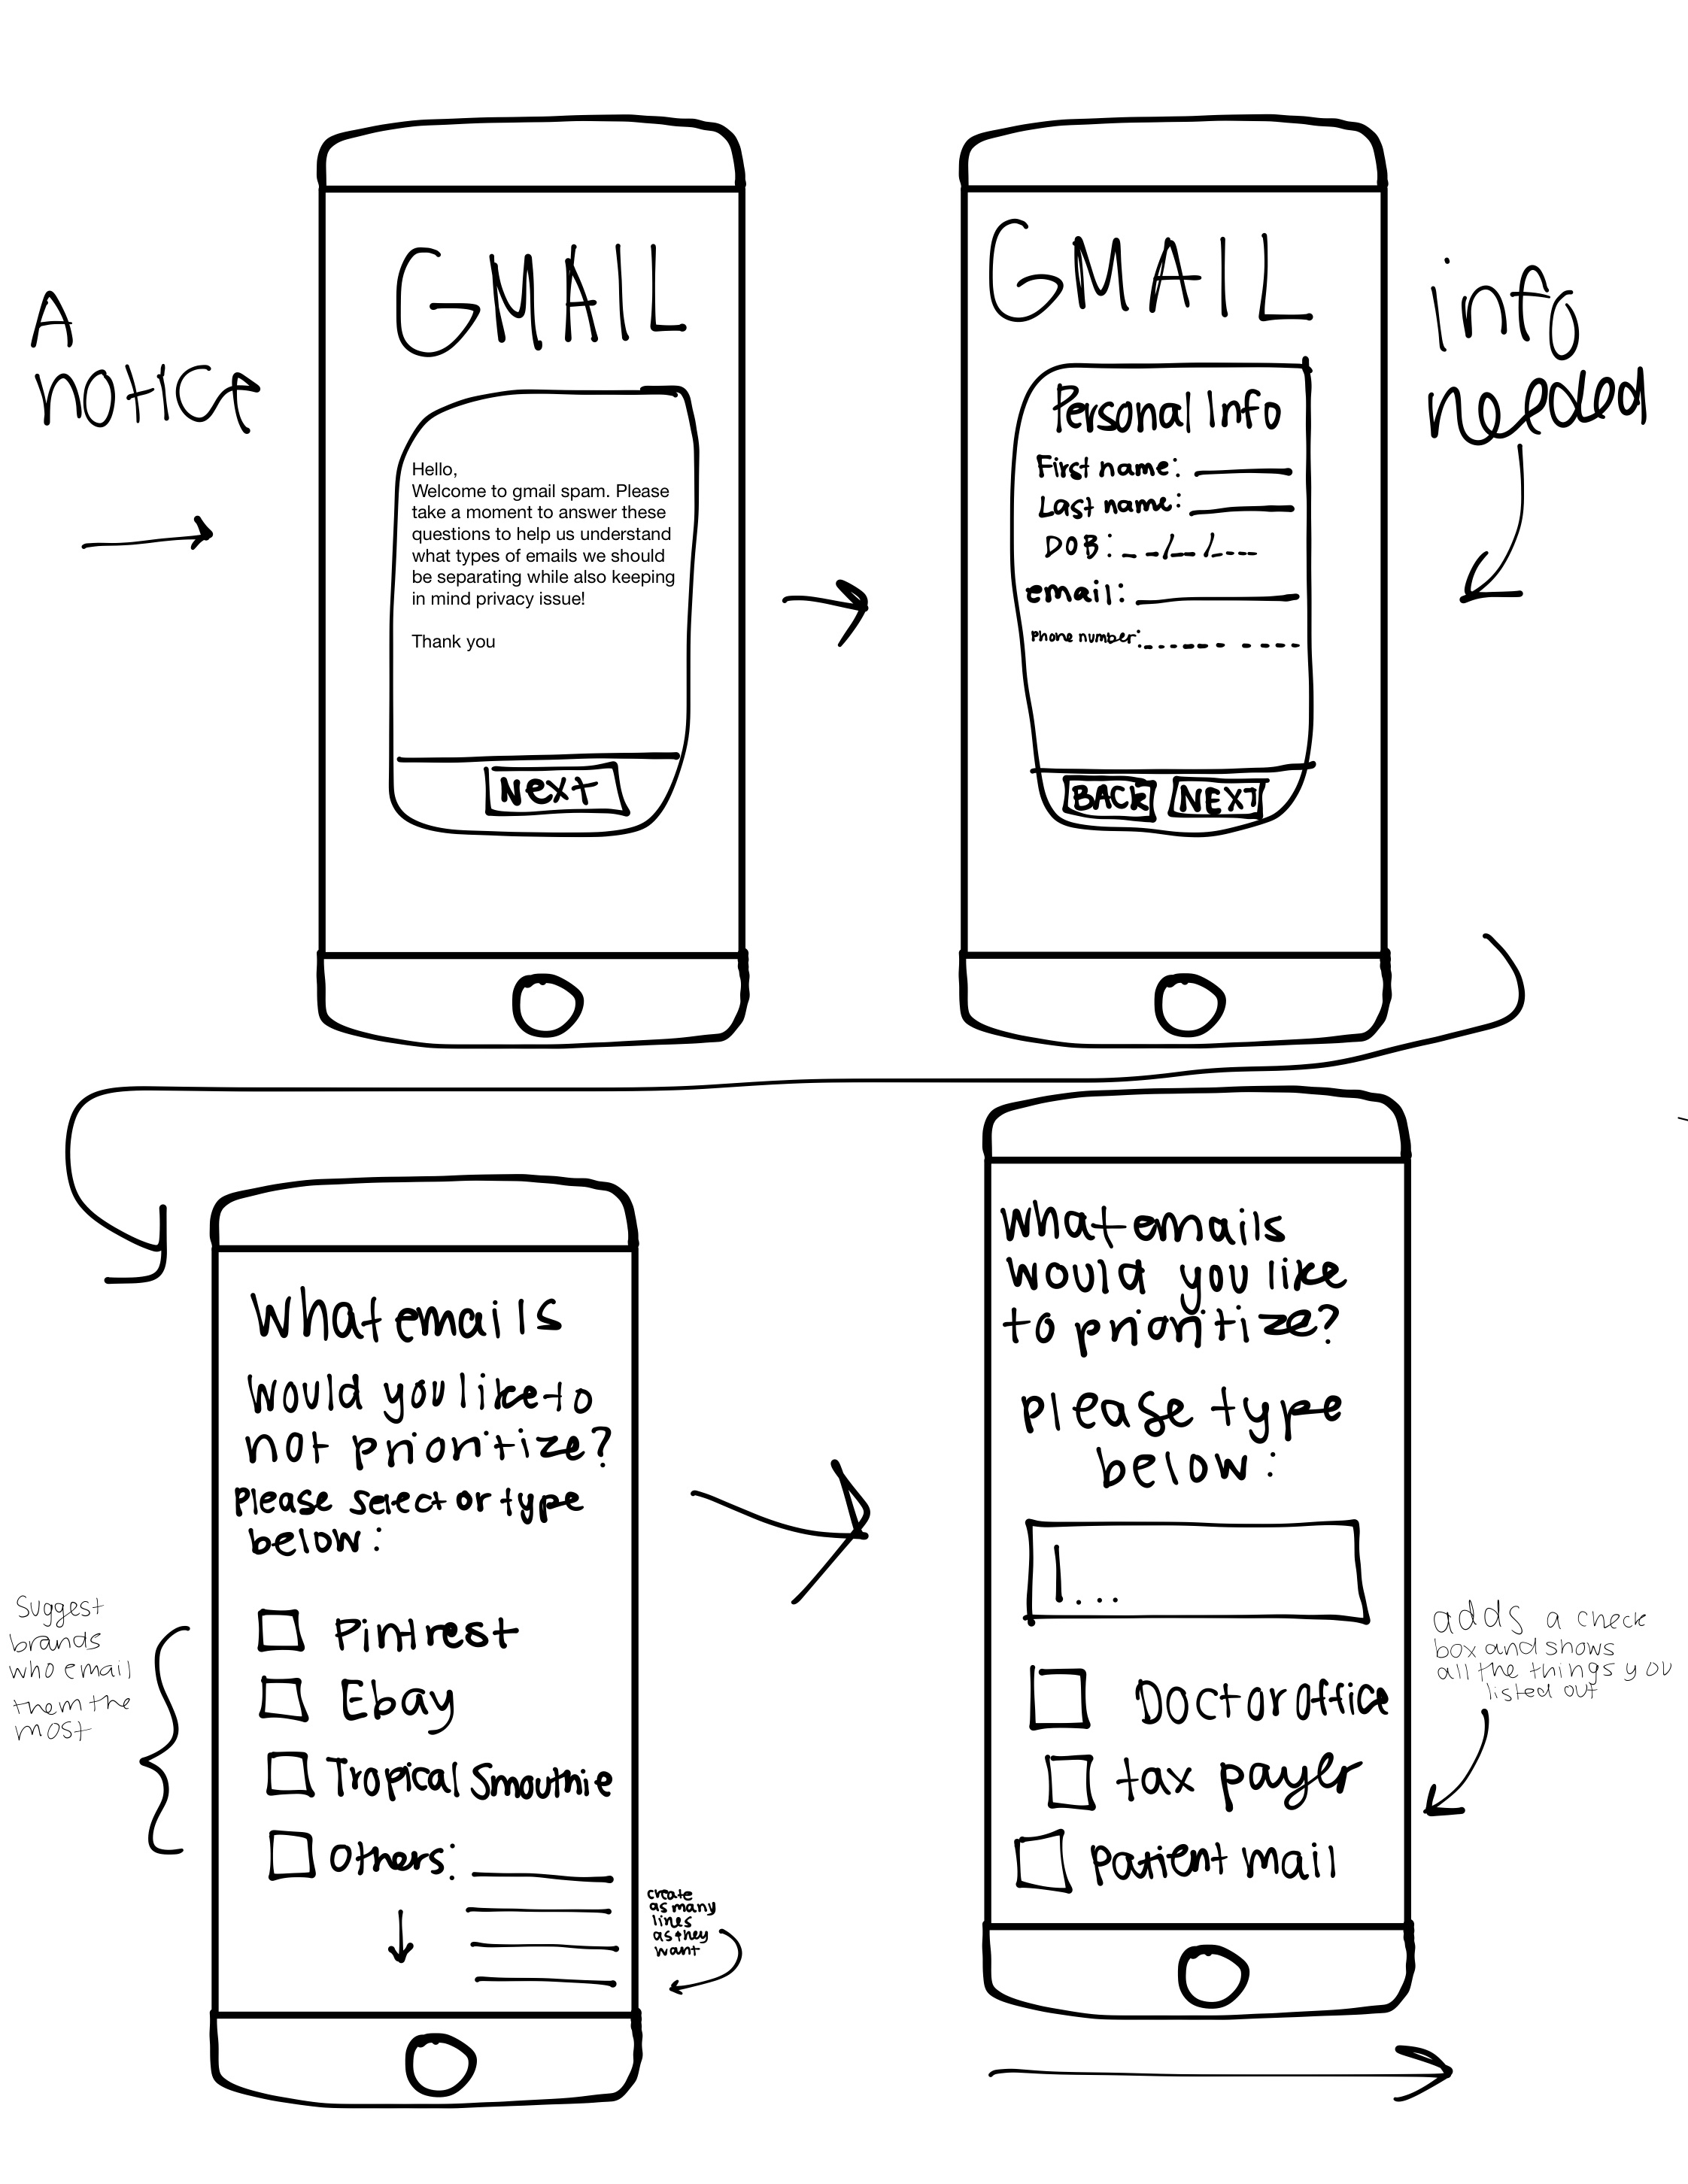 A
notice
GMAIL
Hello,
Welcome to gmail spam. Please
take a moment to answer these
questions to help us understand
what types of emails we should
be separating while also keeping
in mind privacy issue!
Thank you
Next
GMAIL
Personal Info
First name:
Last name:
DOB: _ _/_ _ /_ _ _ _
email:
Phone number:
BACK
NEXT
info
needed
What emails
would you like to
not prioritize?
Please select or type
below:
Pintrest
Ebay
Tropical Smouthie
Others:
Suggest
brands
who email
them the
most
create
as many
lines
as they
want
what emails
would you like
to prioritize?
please type
below:
|...
Doctor office
tax payer
Patient mail
adds a check
box and shows
all the things you
listed out